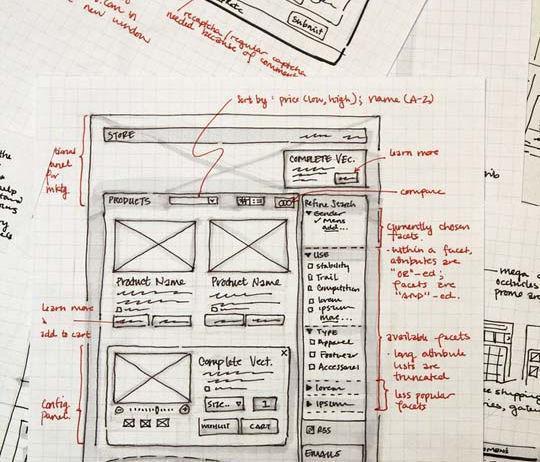 new window
recaptcha/regular captcha
needed because of comment
submit
sort by: price (low, high); name (A-Z)
STORE
COMPLETE VEC.
learn more
compare
PRODUCTS
Refine Search
Gender
Mens
add...
currently chosen
facets.
- within a facet,
attributes are
"OR"-ed;
facets are
"and"-ed.
USE
Stability
Trail
Competition
lorem
ipsum
more...
Product Name
Product Name
learn more
&
add to cart
TYPE
Apparel
Footwear
Accessories
available facets
- long attribute
lists are
truncated
lorem
ipsum
less popular
facets
Config.
panel.
Complete Vect.
x
SIZE..
1
WISHLIST
CART
RSS
EMAILS
mega
shipping